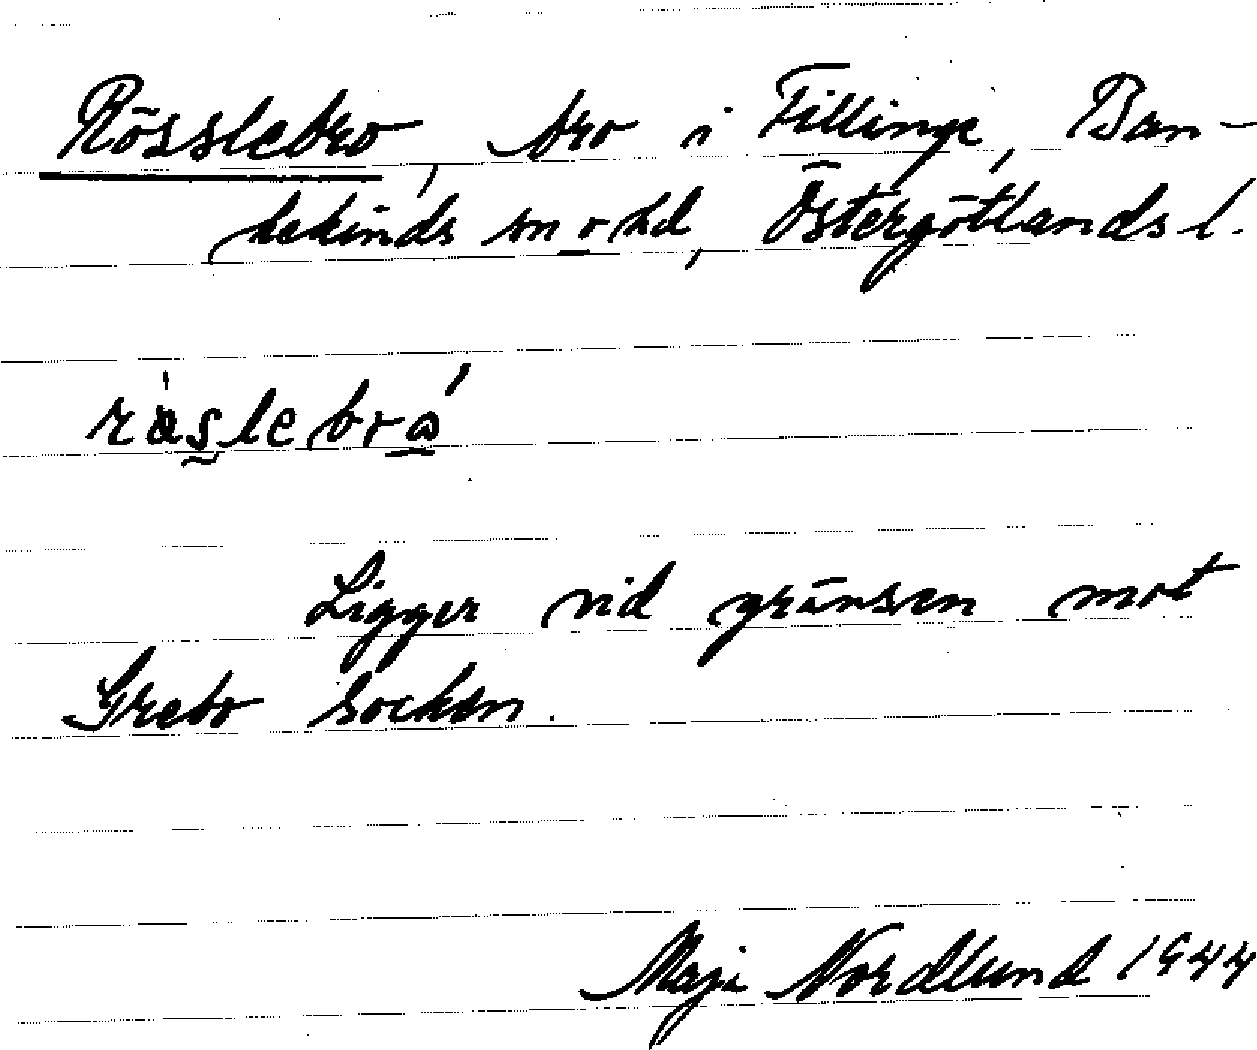 Rösslebro, bro i Fillinge, Ban-
kekinds sn o hd, Östergötlands l.
Ligger vid gränsen mot
Grebo socken.
Maja Nordlund 1944